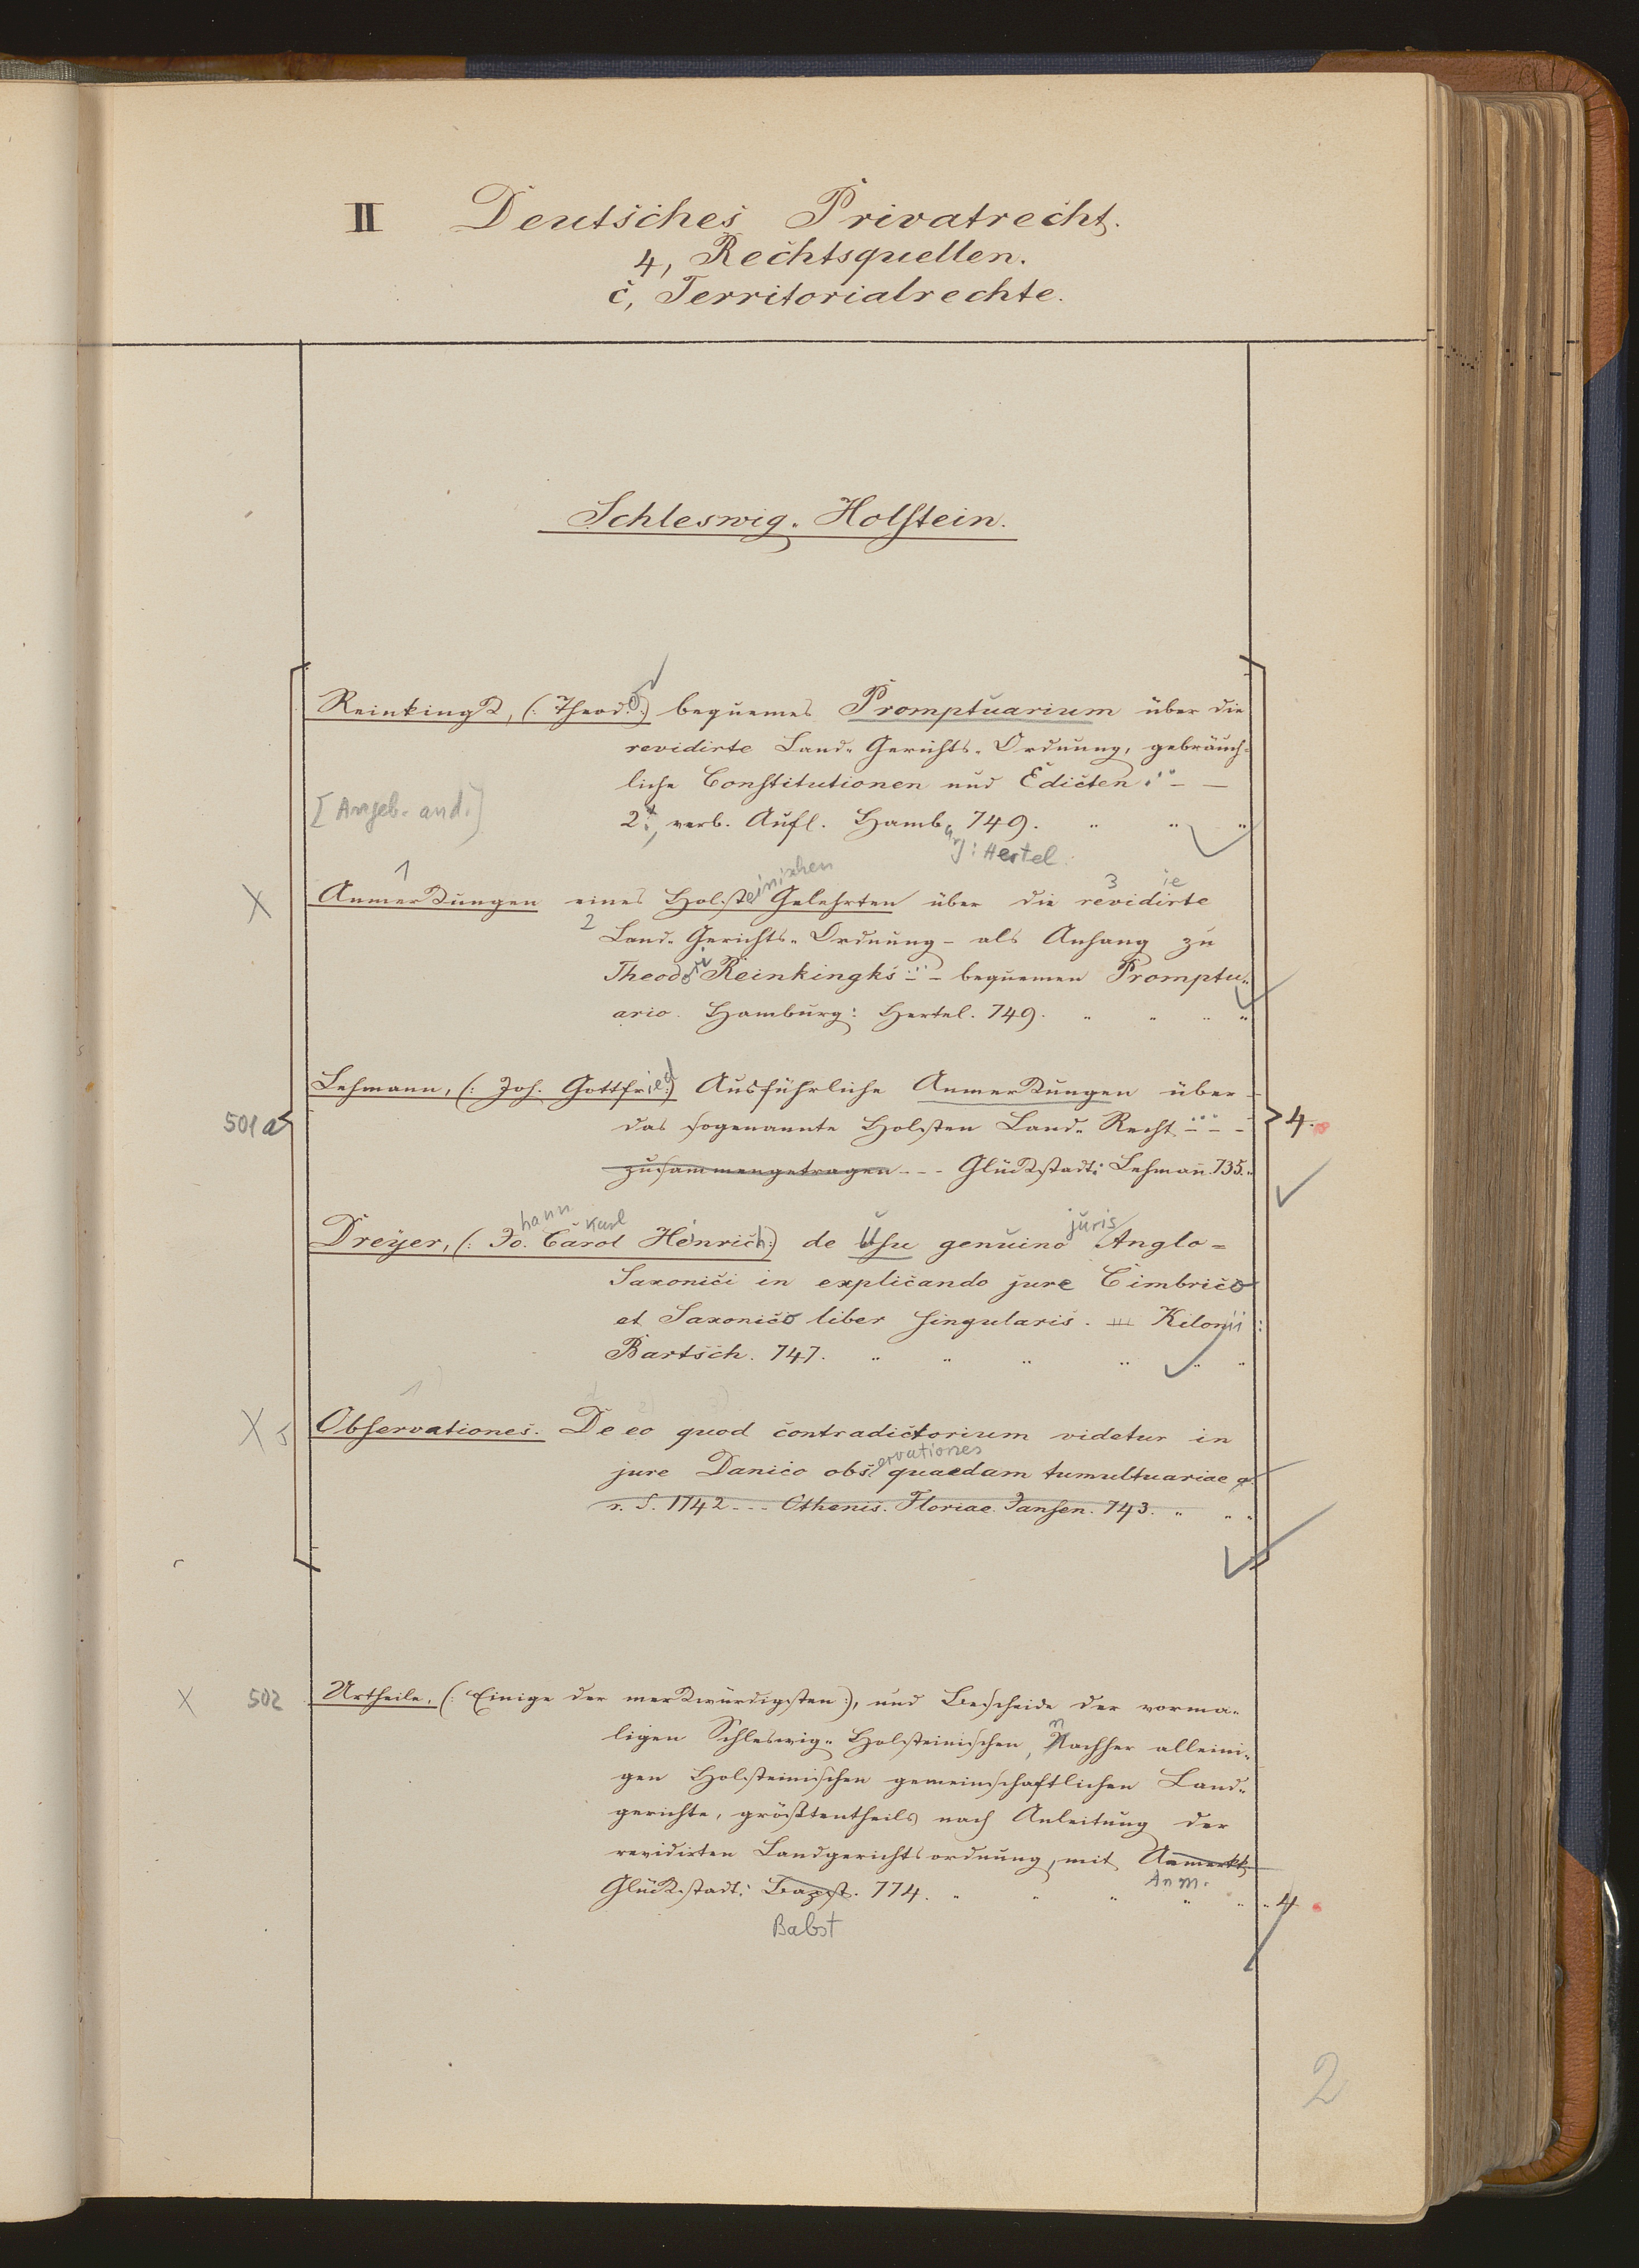 II Deutsches Privatrecht.
4, Rechtsquellen.
c, Territorialrechte.
Schleswig-Holstein.
Reinkingk, (: Theod.:) bequemes Promptuarium über die
revidirte Land-Gerichts-Ordnung, gebräuch-
liche Constitutionen und Edicten - -
2t, verb. Aufl. Hamb. 749. " " "
[Angeb. and.]
urg: Hertel.
1 einischen 3 ie
X Anmerkungen eines Holste Gelehrten über die revidirte
2 Land-Gerichts-Ordnung - als Anhang zu
Theodor Reinkingks - - bequemen Promptu-
ario. Hamburg: Hertel. 749. " " " "
Lehmann, (: Joh. Gottfried:) Ausführliche Anmerkungen über
501a das sogenannte Holsten Land-Recht - - - 4.
zusammengetragen - - - Glückstadt: Lehmañ. 735.
hann Karl juris
Dreyer, (: Jo. Carol Heinrich:) de Usu genuino Anglo-
Saxonici in explicando jure Cimbrico
et Saxonico liber singularis. Kilonii:
Bartsch. 747. " " " " " "
1
X Observationes. De eo quod contradictorium videtur in
ervationes
jure Danico obs quaedam tumultuariae
r. S. 1742 - - - Othenis. Floriae. Jansen. 743. " " "
X 502 Urtheile, (: Einige der merkwürdigsten:), und Bescheide der vorma-
ligen Schleswig-Holsteinischen, nachher alleini-
gen Holsteinischen gemeinschaftlichen Land-
gerichte, größtentheils nach Anleitung der
revidirten Landgerichtsordnung, mit Anmerkk
Anm.
Glückstadt: Bapst. 774. " " " " " " 4
Babst
2